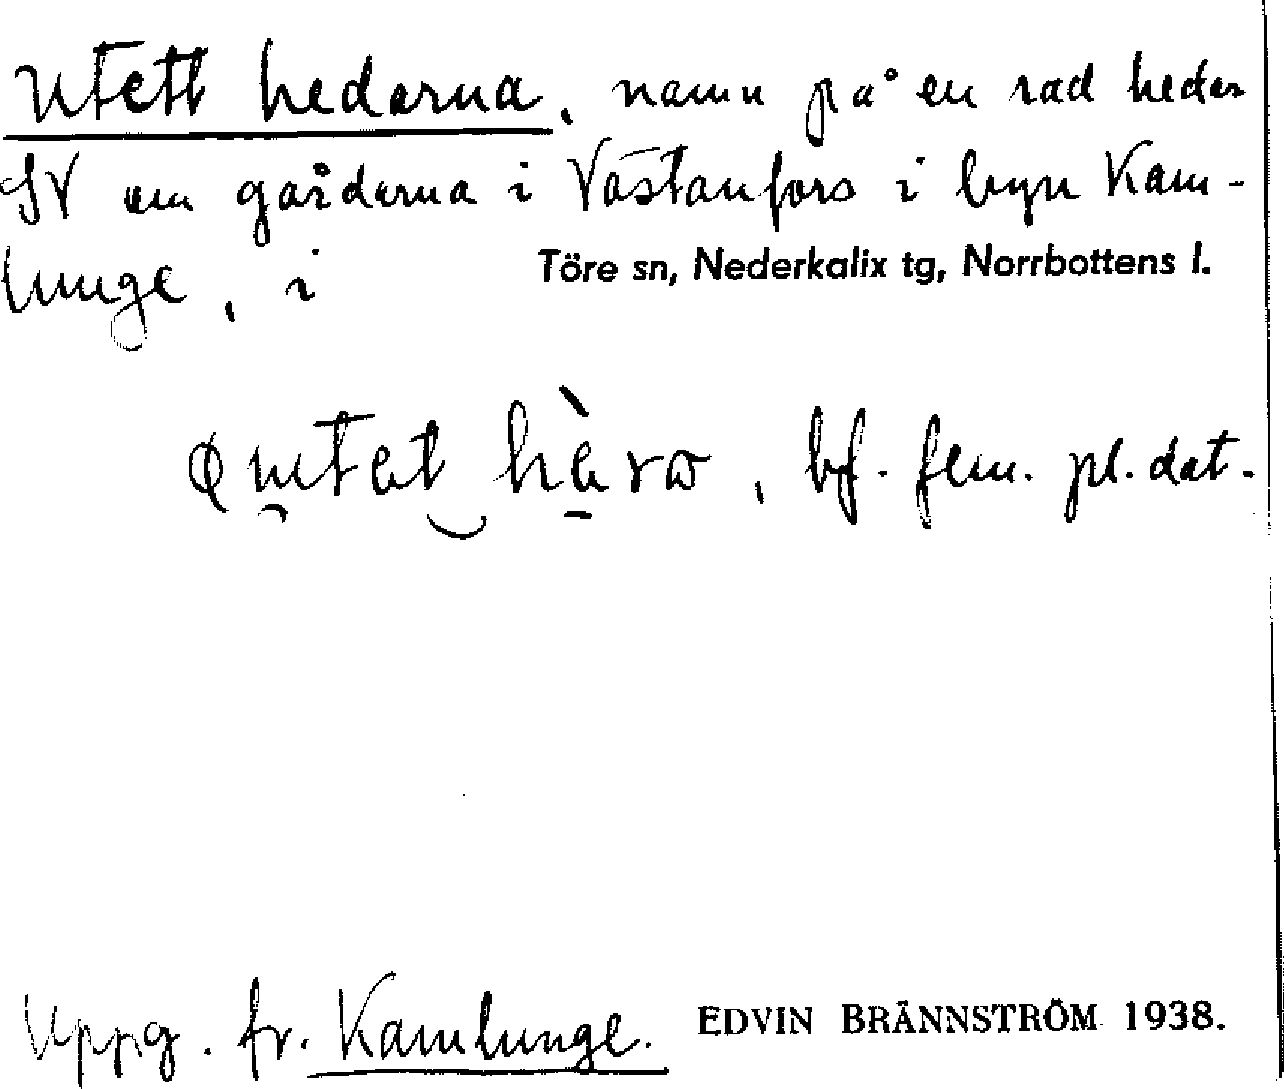 Utett hederna, namn på en rad heder
SV om gårdarna i Västanfors i byn Kam-
lunge, i Töre sn, Nederkalix tg, Norrbottens l.
bf. fem. pl. dat.
Uppg. fr. Kamlunge. EDVIN BRÄNNSTRÖM 1938.